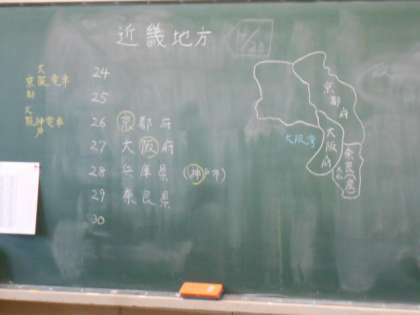 近畿地方
24
25
26 京都府
27 大阪府
28 兵庫県 (神戸市)
29 奈良県
30
大阪 電車
京都
大阪神戸電車
京都府
大阪府
大阪湾
奈良(県)